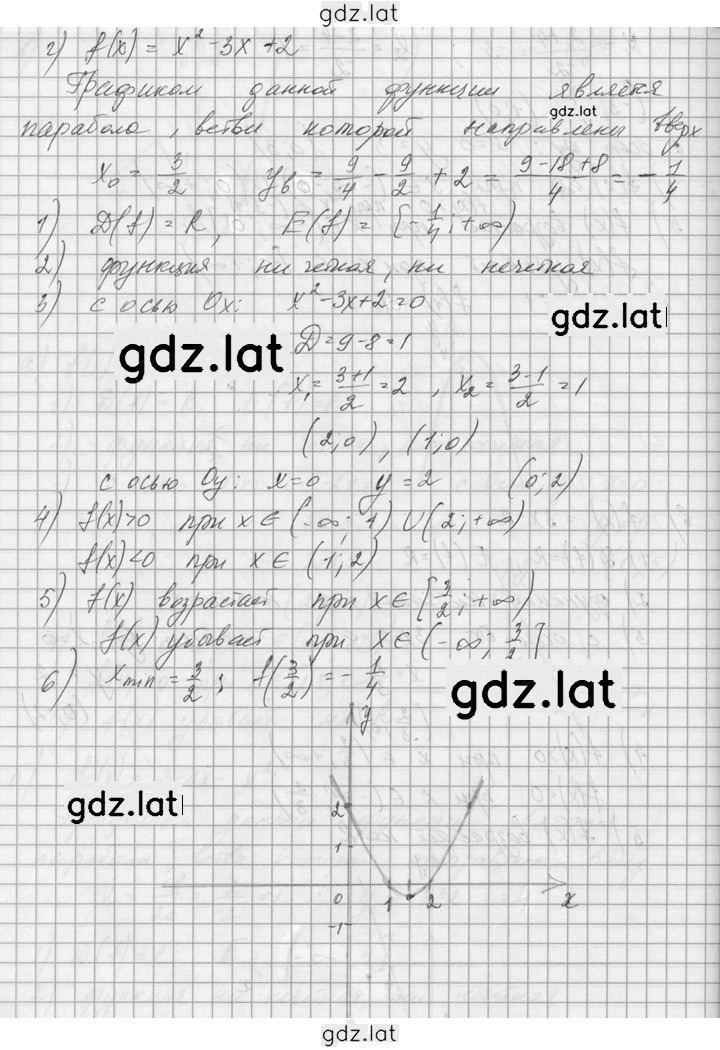 gdz.lat
г) f(x) = x² - 3x + 2
Графиком данной функции является
gdz.lat
парабола, ветви которой направлены вверх
x₀ = 3/2 y_в = 9/4 - 9/2 + 2 = (9-18+8)/4 = -1/4
1) D(f) = R, E(f) = [-1/4; +∞)
2) функция ни четная, ни нечетная
3) с осью Ox: x² - 3x + 2 = 0
gdz.lat
gdz.lat
D = 9 - 8 = 1
x₁ = (3+1)/2 = 2 , x₂ = (3-1)/2 = 1
(2; 0), (1; 0)
с осью Oy: x = 0 y = 2 (0; 2)
4) f(x)>0 при x ∈ (-∞; 1) ∪ (2; +∞)
f(x)<0 при x ∈ (1; 2)
5) f(x) возрастает при x ∈ [3/2; +∞)
f(x) убывает при x ∈ (-∞; 3/2]
6) x_min = 3/2 ; f(3/2) = -1/4
gdz.lat
y
gdz.lat
2
1
0 1 2 x
-1
gdz.lat